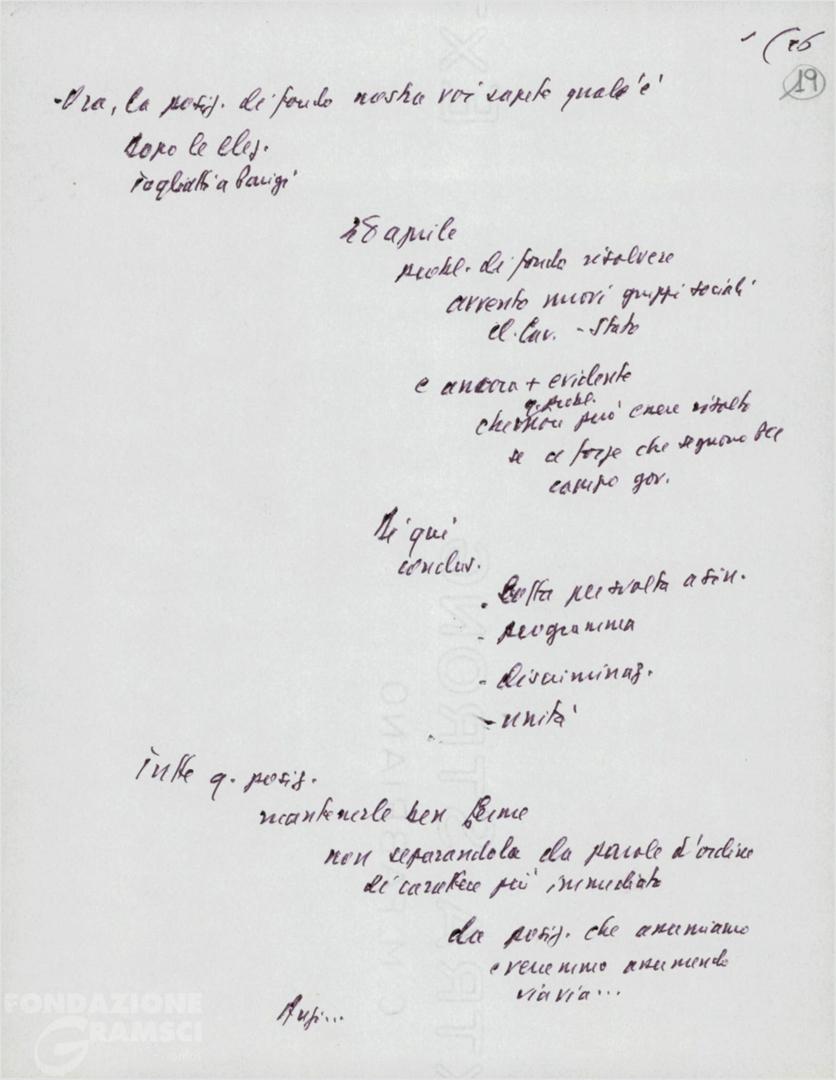 (76
19
- Ora, la posiz. di fondo nostra voi sapete qual'è
Dopo le elez.
Togliatti a Parigi
28 aprile
probl. di fondo risolvere
avvento nuovi gruppi sociali
cl. lav. - Stato
e ancora + evidente
q. probl.
che non può essere risolto
se a forze che seguono PCI
campo gov.
Di qui
conclus.
- Lotta per svolta a sin.
- programma
- discriminaz.
- unità
Tutte q. posiz.
mantenerle ben ferme
non separandola da parole d'ordine
di carattere più immediato
da posiz. che assumiamo
e verremmo assumendo
via via...
Anzi...
FONDAZIONE
GRAMSCI